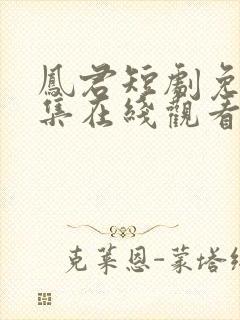 鳳君短劇免
集在綫觀看
克萊恩-蒙塔